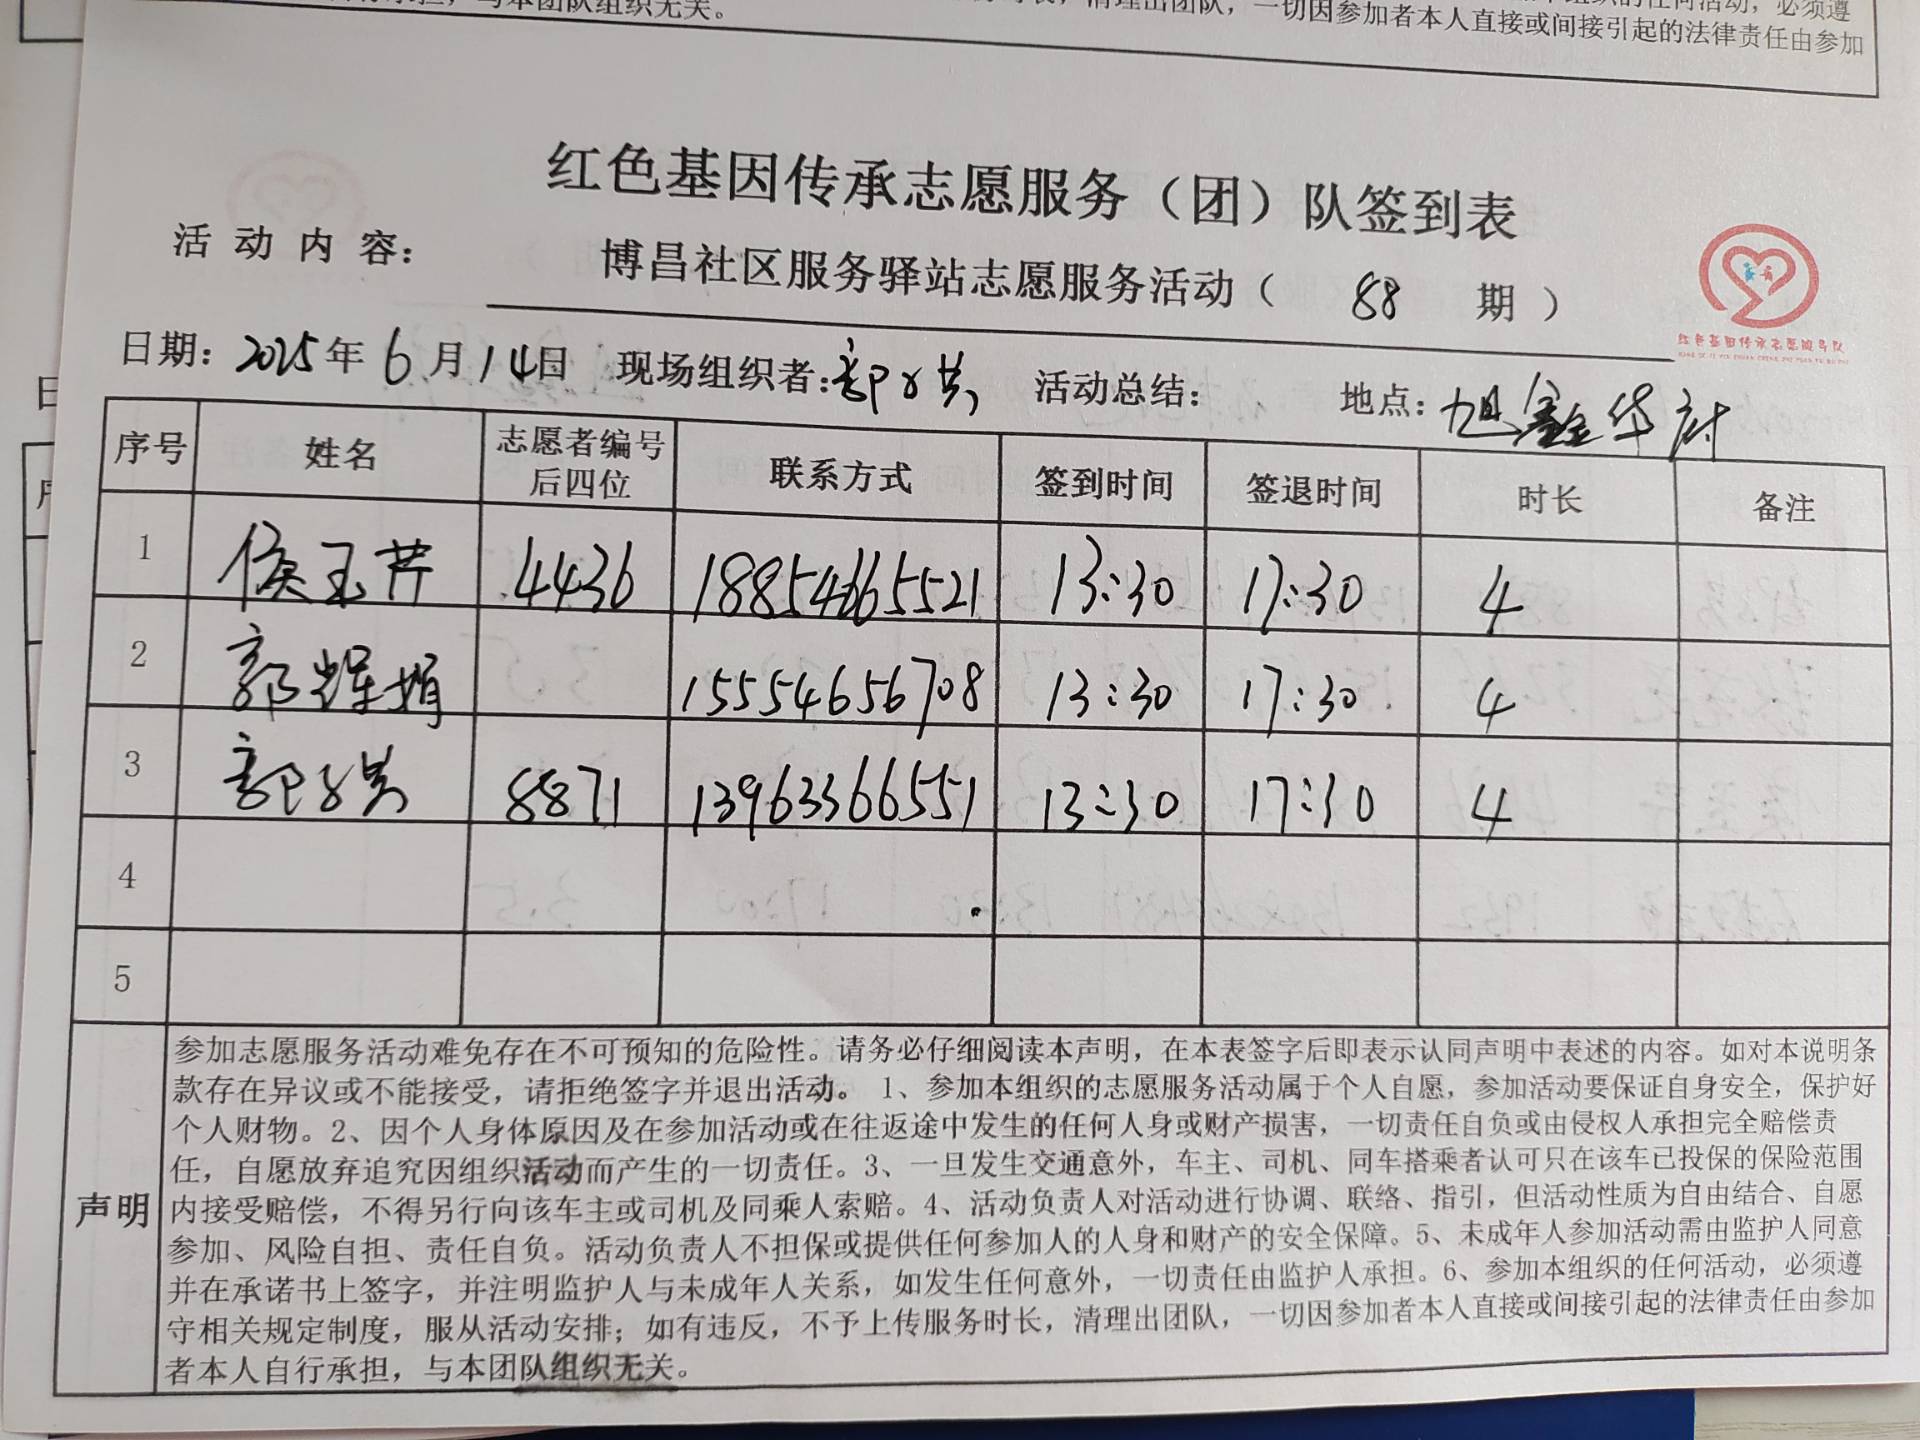 一切因参加者本人直接或间接引起的法律责任由参加
红色基因传承志愿服务（团）队签到表
活动内容： 博昌社区服务驿站志愿服务活动（ 88 期）
红色基因传承志愿服务队
日期：2025年6月14日 现场组织者： 活动总结： 地点：旭鑫华府
序号 姓名 志愿者编号后四位 联系方式 签到时间 签退时间 时长 备注
1 侯玉芹 4436 18854665521 13:30 17:30 4
2 郭辉娟 15554656708 13:30 17:30 4
3 8871 13963366551 13:30 17:30 4
4
5
声明
参加志愿服务活动难免存在不可预知的危险性。请务必仔细阅读本声明，在本表签字后即表示认同声明中表述的内容。如对本说明条
款存在异议或不能接受，请拒绝签字并退出活动。 1、参加本组织的志愿服务活动属于个人自愿，参加活动要保证自身安全，保护好
个人财物。2、因个人身体原因及在参加活动或在往返途中发生的任何人身或财产损害，一切责任自负或由侵权人承担完全赔偿责
任，自愿放弃追究因组织活动而产生的一切责任。3、一旦发生交通意外，车主、司机、同车搭乘者认可只在该车已投保的保险范围
内接受赔偿，不得另行向该车主或司机及同乘人索赔。4、活动负责人对活动进行协调、联络、指引，但活动性质为自由结合、自愿
参加、风险自担、责任自负。活动负责人不担保或提供任何参加人的人身和财产的安全保障。5、未成年人参加活动需由监护人同意
并在承诺书上签字，并注明监护人与未成年人关系，如发生任何意外，一切责任由监护人承担。6、参加本组织的任何活动，必须遵
守相关规定制度，服从活动安排；如有违反，不予上传服务时长，清理出团队，一切因参加者本人直接或间接引起的法律责任由参加
者本人自行承担，与本团队组织无关。